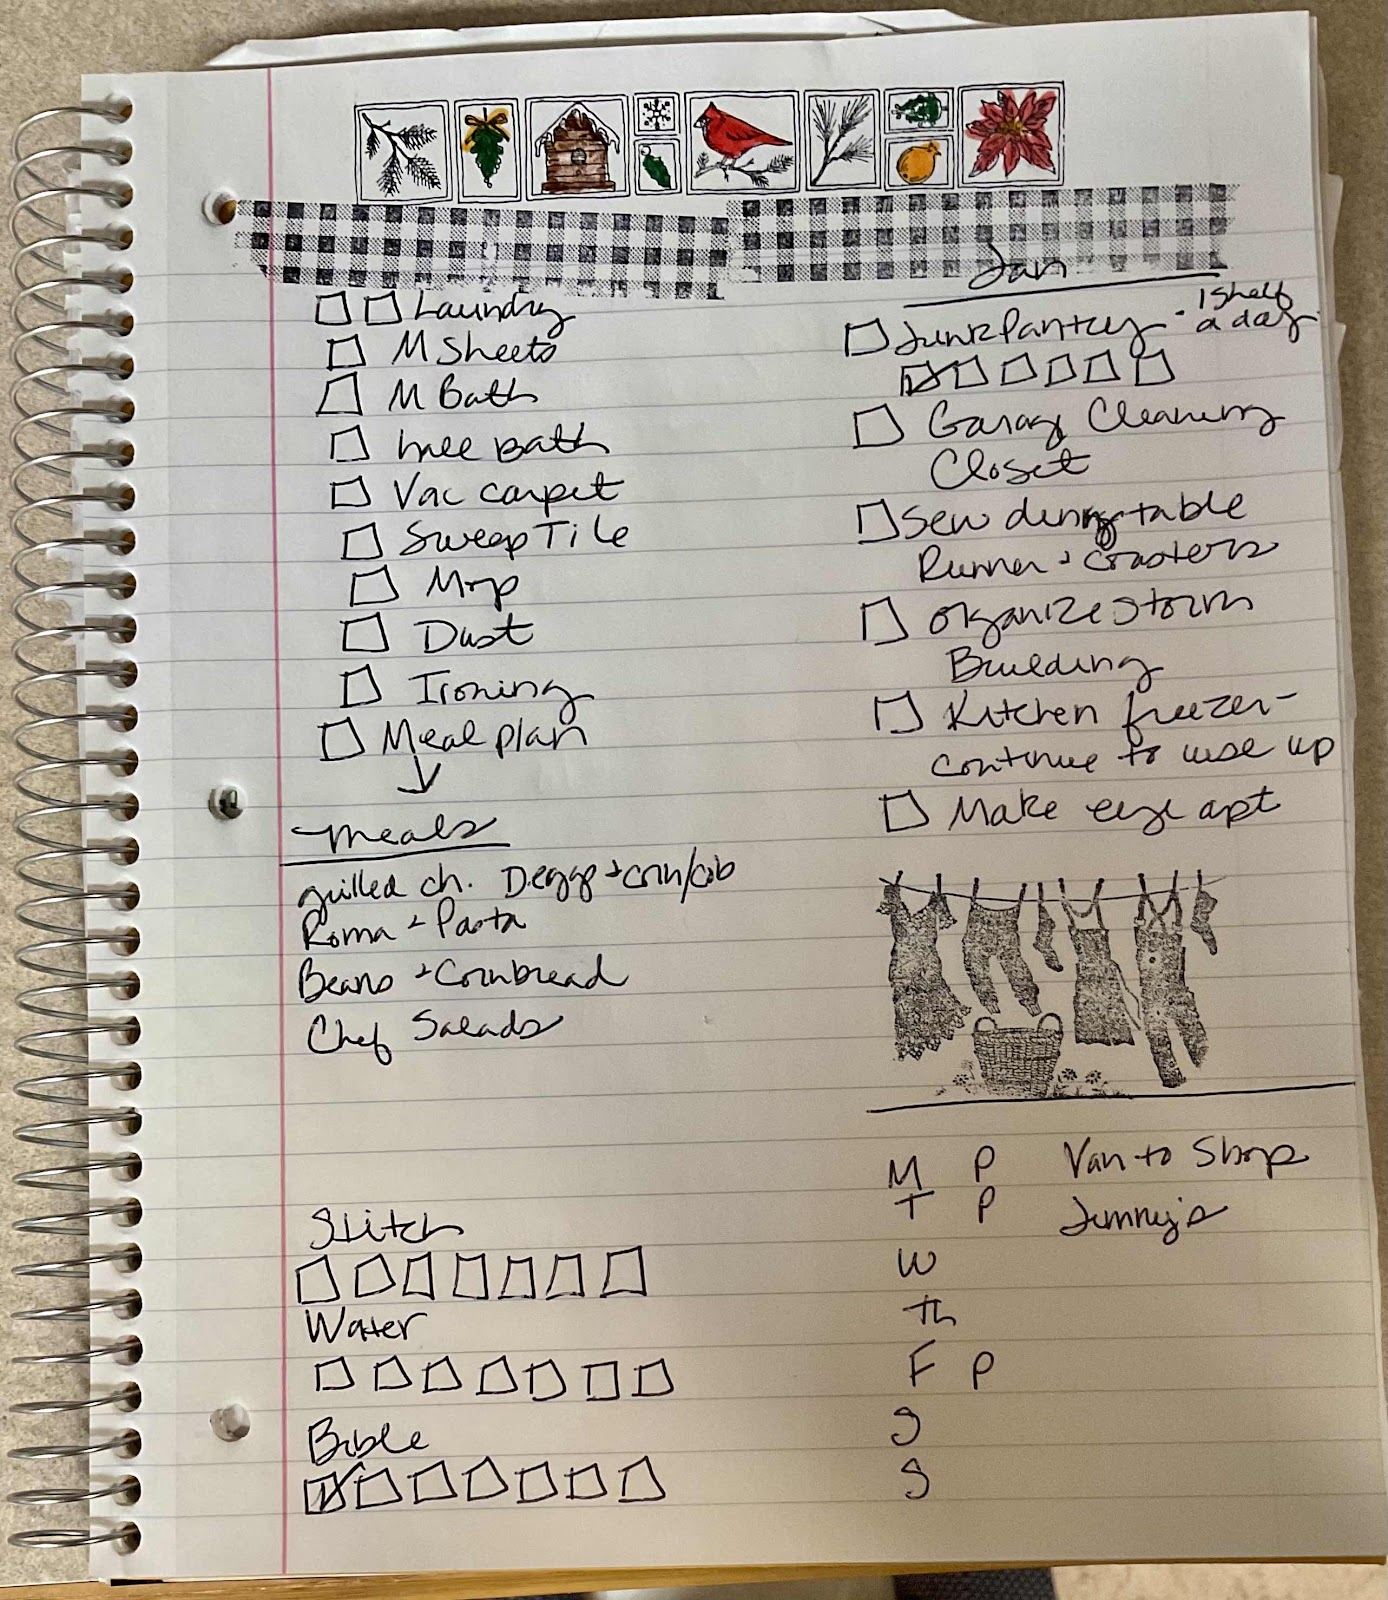 Laundry
M Sheets
M Bath
Bath
Vac carpet
Sweep Tile
Mop
Dust
Ironing
Meal plan
Meals
grilled ch. + corn/cob
Roma + Pasta
Beans + Cornbread
Chef Salads
Stitch
Water
Bible
Jan
Junk Pantry - 1 shelf
a day
Garage Cleaning
Closet
Sew dining table
Runner + coasters
Organize storm
Building
Kitchen freezer -
continue to use up
Make eye apt
M P Van to Shop
T P
W
Th
F P
S
S